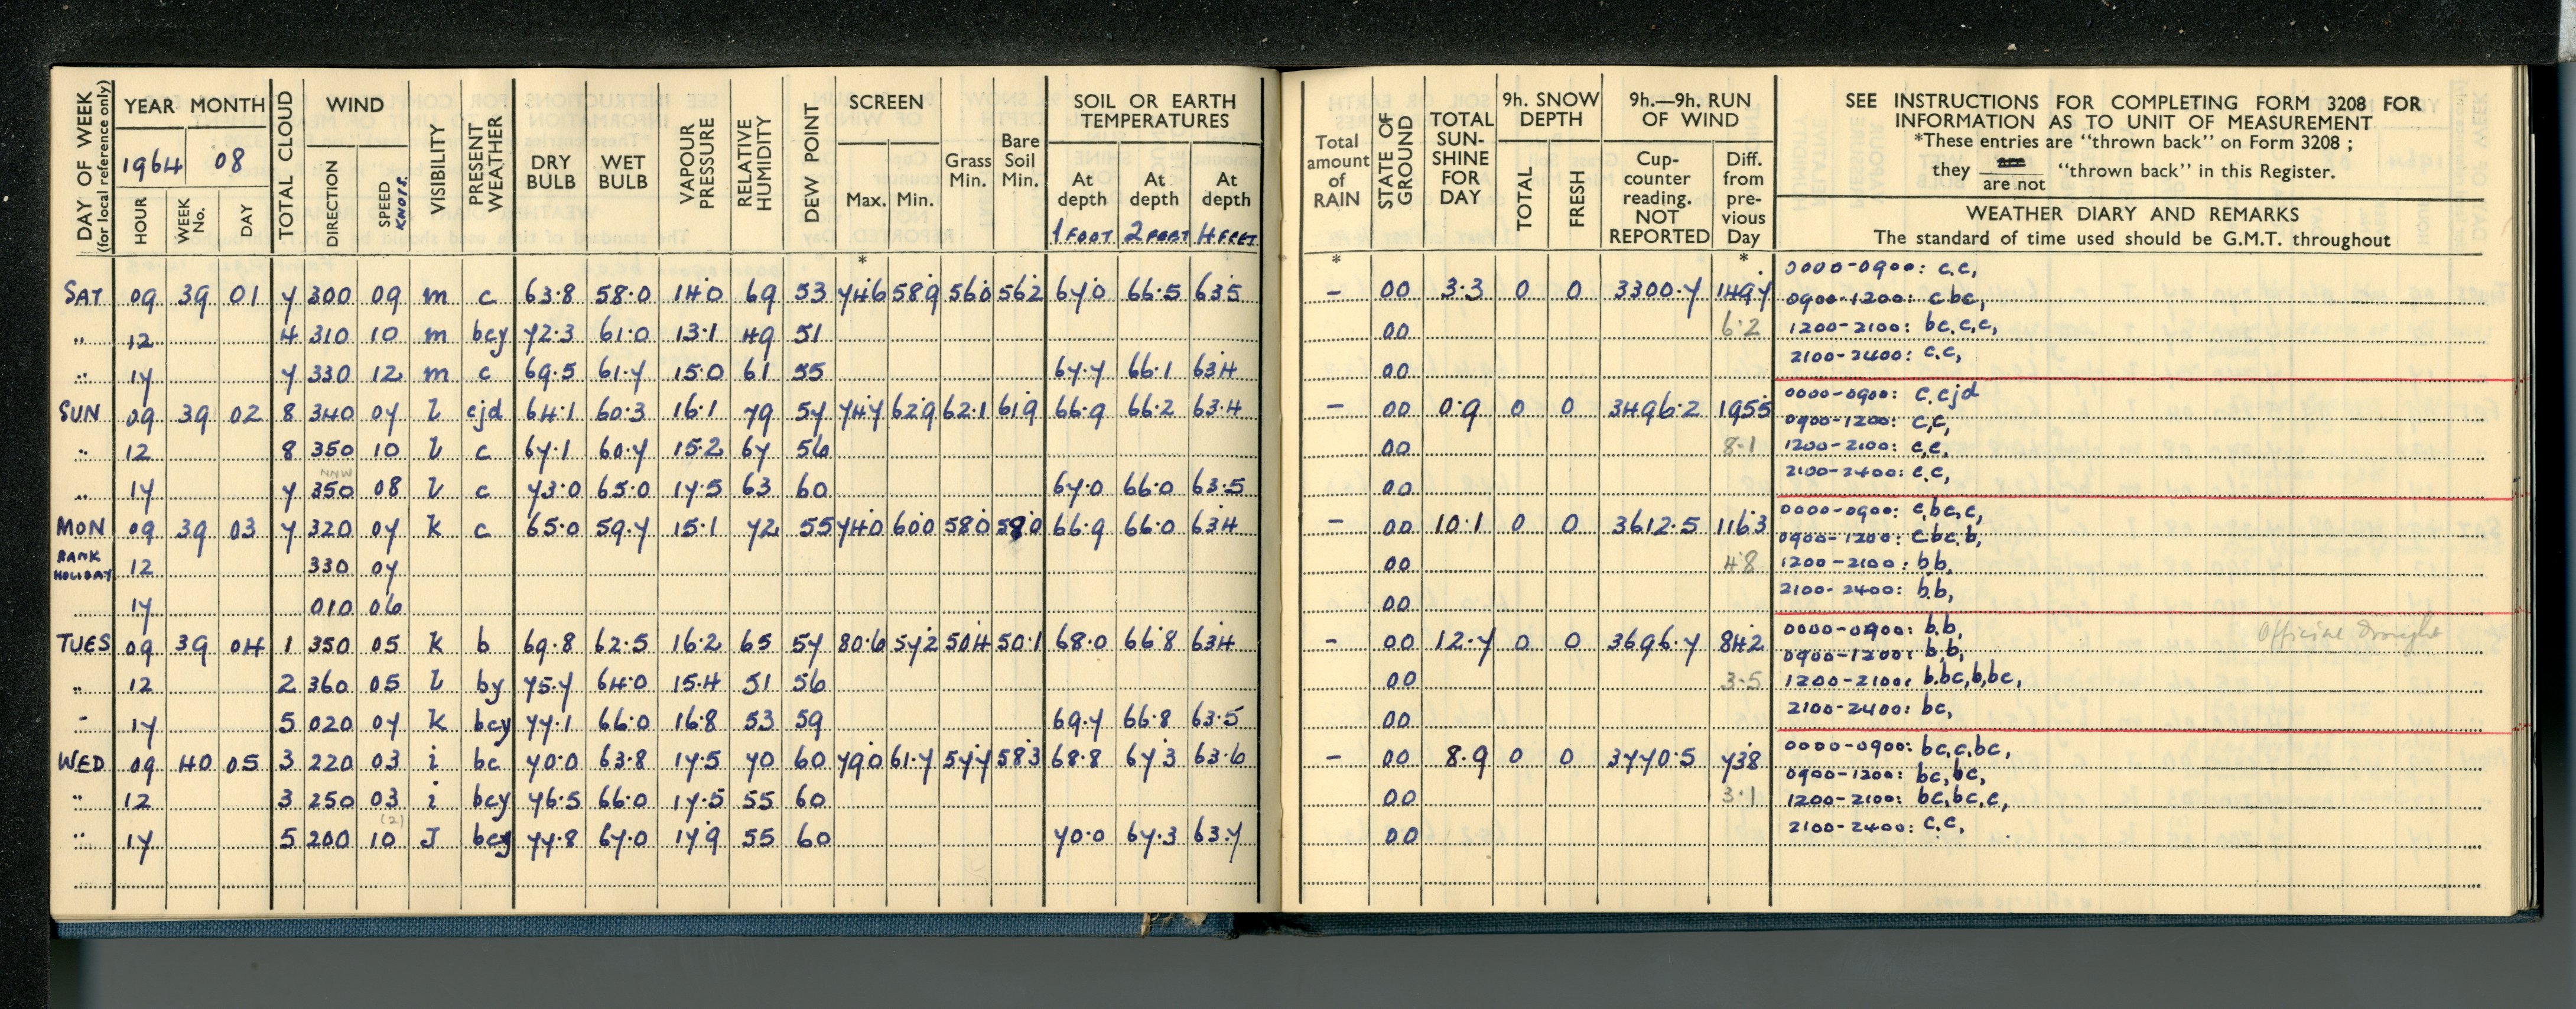 DAY OF WEEK (for local reference only) YEAR MONTH TOTAL CLOUD WIND VISIBILITY PRESENT WEATHER DRY BULB WET BULB VAPOUR PRESSURE RELATIVE HUMIDITY DEW POINT SCREEN Grass Min. Bare Soil Min. SOIL OR EARTH TEMPERATURES
1964 08
HOUR WEEK No. DAY DIRECTION SPEED KNOTS. Max. Min. At depth At depth At depth
1 FOOT 2 FEET 4 FEET
*
SAT 09 39 01 7 300 09 m c 63.8 58.0 14.0 69 53 74.6 58.9 56.0 56.2 67.0 66.5 63.5
" 12 4 310 10 m bcy 72.3 61.0 13.1 49 51
" 17 7 330 12 m c 69.5 61.7 15.0 61 55 67.7 66.1 63.4
SUN 09 39 02 8 340 07 l cjd 64.1 60.3 16.1 79 57 74.7 62.9 62.1 61.9 66.9 66.2 63.4
" 12 8 350 10 l c 67.1 60.7 15.2 67 56
NNW
" 17 7 350 08 l c 73.0 65.0 17.5 63 60 67.0 66.0 63.5
MON 09 39 03 7 320 07 k c 65.0 59.7 15.1 72 55 74.0 60.0 58.0 58.0 66.9 66.0 63.4
BANK HOLIDAY 12 330 07
17 010 06
TUES 09 39 04 1 350 05 k b 69.8 62.5 16.2 65 57 80.6 57.2 50.4 50.1 68.0 66.8 63.4
" 12 2 360 05 l by 75.7 64.0 15.4 51 56
" 17 5 020 07 k bcy 77.1 66.0 16.8 53 59 69.7 66.8 63.5
WED 09 40 05 3 220 03 i bc 70.0 63.8 17.5 70 60 79.0 61.7 57.7 58.3 68.8 67.3 63.6
" 12 3 250 03 i bcy 76.5 66.0 17.5 55 60
(2)
" 17 5 200 10 J bcy 77.8 67.0 17.9 55 60 70.0 67.3 63.7
Total amount of RAIN STATE OF GROUND TOTAL SUN-SHINE FOR DAY 9h. SNOW DEPTH 9h.—9h. RUN OF WIND
TOTAL FRESH Cup-counter reading. NOT REPORTED Diff. from pre-vious Day
* *
– 00 3.3 0 0 3300.7 149.7
00 6.2
00
– 00 0.9 0 0 3496.2 195.5
00 8.1
00
– 00 10.1 0 0 3612.5 116.3
00 4.8
00
– 00 12.7 0 0 3696.7 84.2
00 3.5
00
– 00 8.9 0 0 3770.5 73.8
00 3.1
00
SEE INSTRUCTIONS FOR COMPLETING FORM 3208 FOR
INFORMATION AS TO UNIT OF MEASUREMENT
*These entries are "thrown back" on Form 3208 ;
they are / are not "thrown back" in this Register.
WEATHER DIARY AND REMARKS
The standard of time used should be G.M.T. throughout
0000-0900: c.c,
0900-1200: c bc,
1200-2100: bc.c.c,
2100-2400: c.c,
0000-0900: c.cjd
0900-1200: c,c,
1200-2100: c,c,
2100-2400: c.c,
0000-0900: c,bc,c,
0900-1200: c bc.b,
1200-2100: b b,
2100-2400: b.b,
0000-0900: b.b,
Official Drought
0900-1200: b,b,
1200-2100: b.bc,b,bc,
2100-2400: bc,
0000-0900: bc,c,bc,
0900-1200: bc,bc,
1200-2100: bc,bc,c,
2100-2400: c.c,